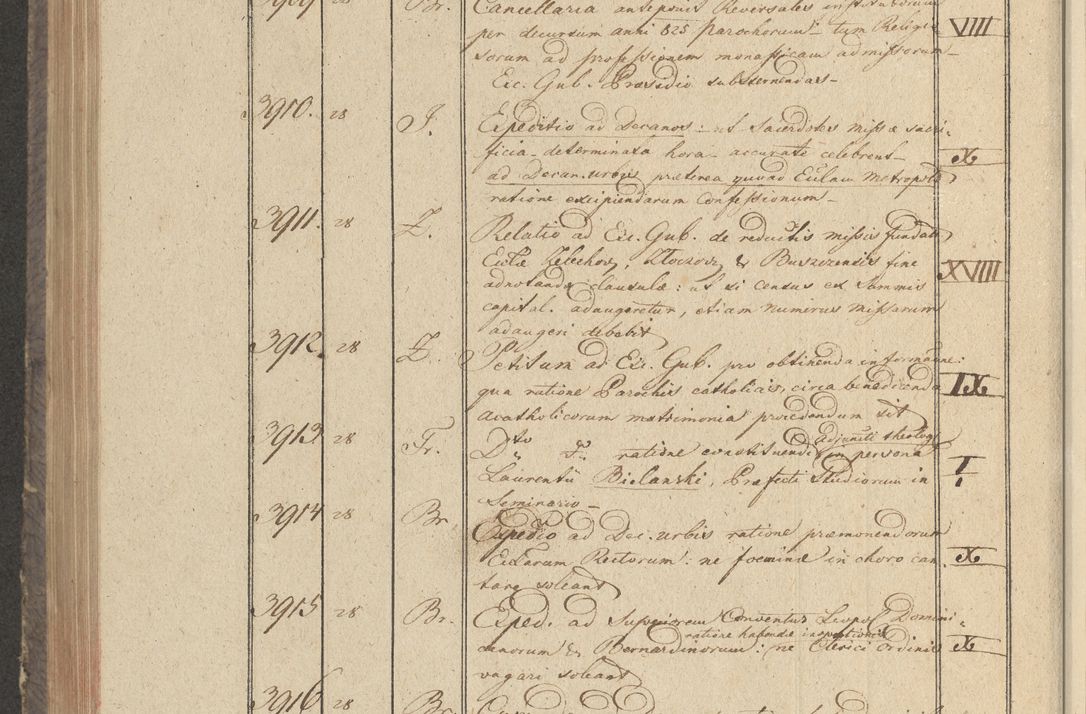 3909 28 Br. Cancellaria anteponit Reversales institutorum
per decursum anni 825 Parochorum – tum Religio VIIII
sorum ad professionem monasticam admissorum –
Exc. Gub. Præsidio substernendas –
3910. 28 J. Expeditio ad Decanos: ut Sacerdotes missæ sacri-
ficia – determinata hora – accurate celebrent – X
ad Decan. urbis præterea quoad Eccl̄am Metropolit
ratione excipiendarum Confessionum –
3911. 28 Z. Relatio ad Exc. Gub. de reductis missis fundatis
Eccl̄æ Zelechov, Złoczov, & Buszczensis sine XVIIII
adnotanda clausulæ: ut si census ex summis
capital. adaugeretur, etiam numerus missarum
adaugeri debebit
3912. 28 Z. Petitum ad Exc. Gub. pro obtinenda informaōne:
qua ratione Parochis catholicis, circa benedicenda IX
acatholicorum matrimonia procedendum sit
3913 28 Fr. Dto ratione constituendi adjuncti theologi in persona I
Laurentii Bielanski, Præfecti Studiorum in
Seminario –
3914 28 Br. Expedio ad Dec. urbis ratione præmonendorum
Eccl̄arum Rectorum: ne foeminæ in choro can X
tare soleant
3915 28 Br. Exped. ad Superiores Conventus Leopol Domini-
canorum & Bernardinorum: ratione habendæ inspectionis ne Clerici Ordinis X
vagari soleant
3916 28 Br.